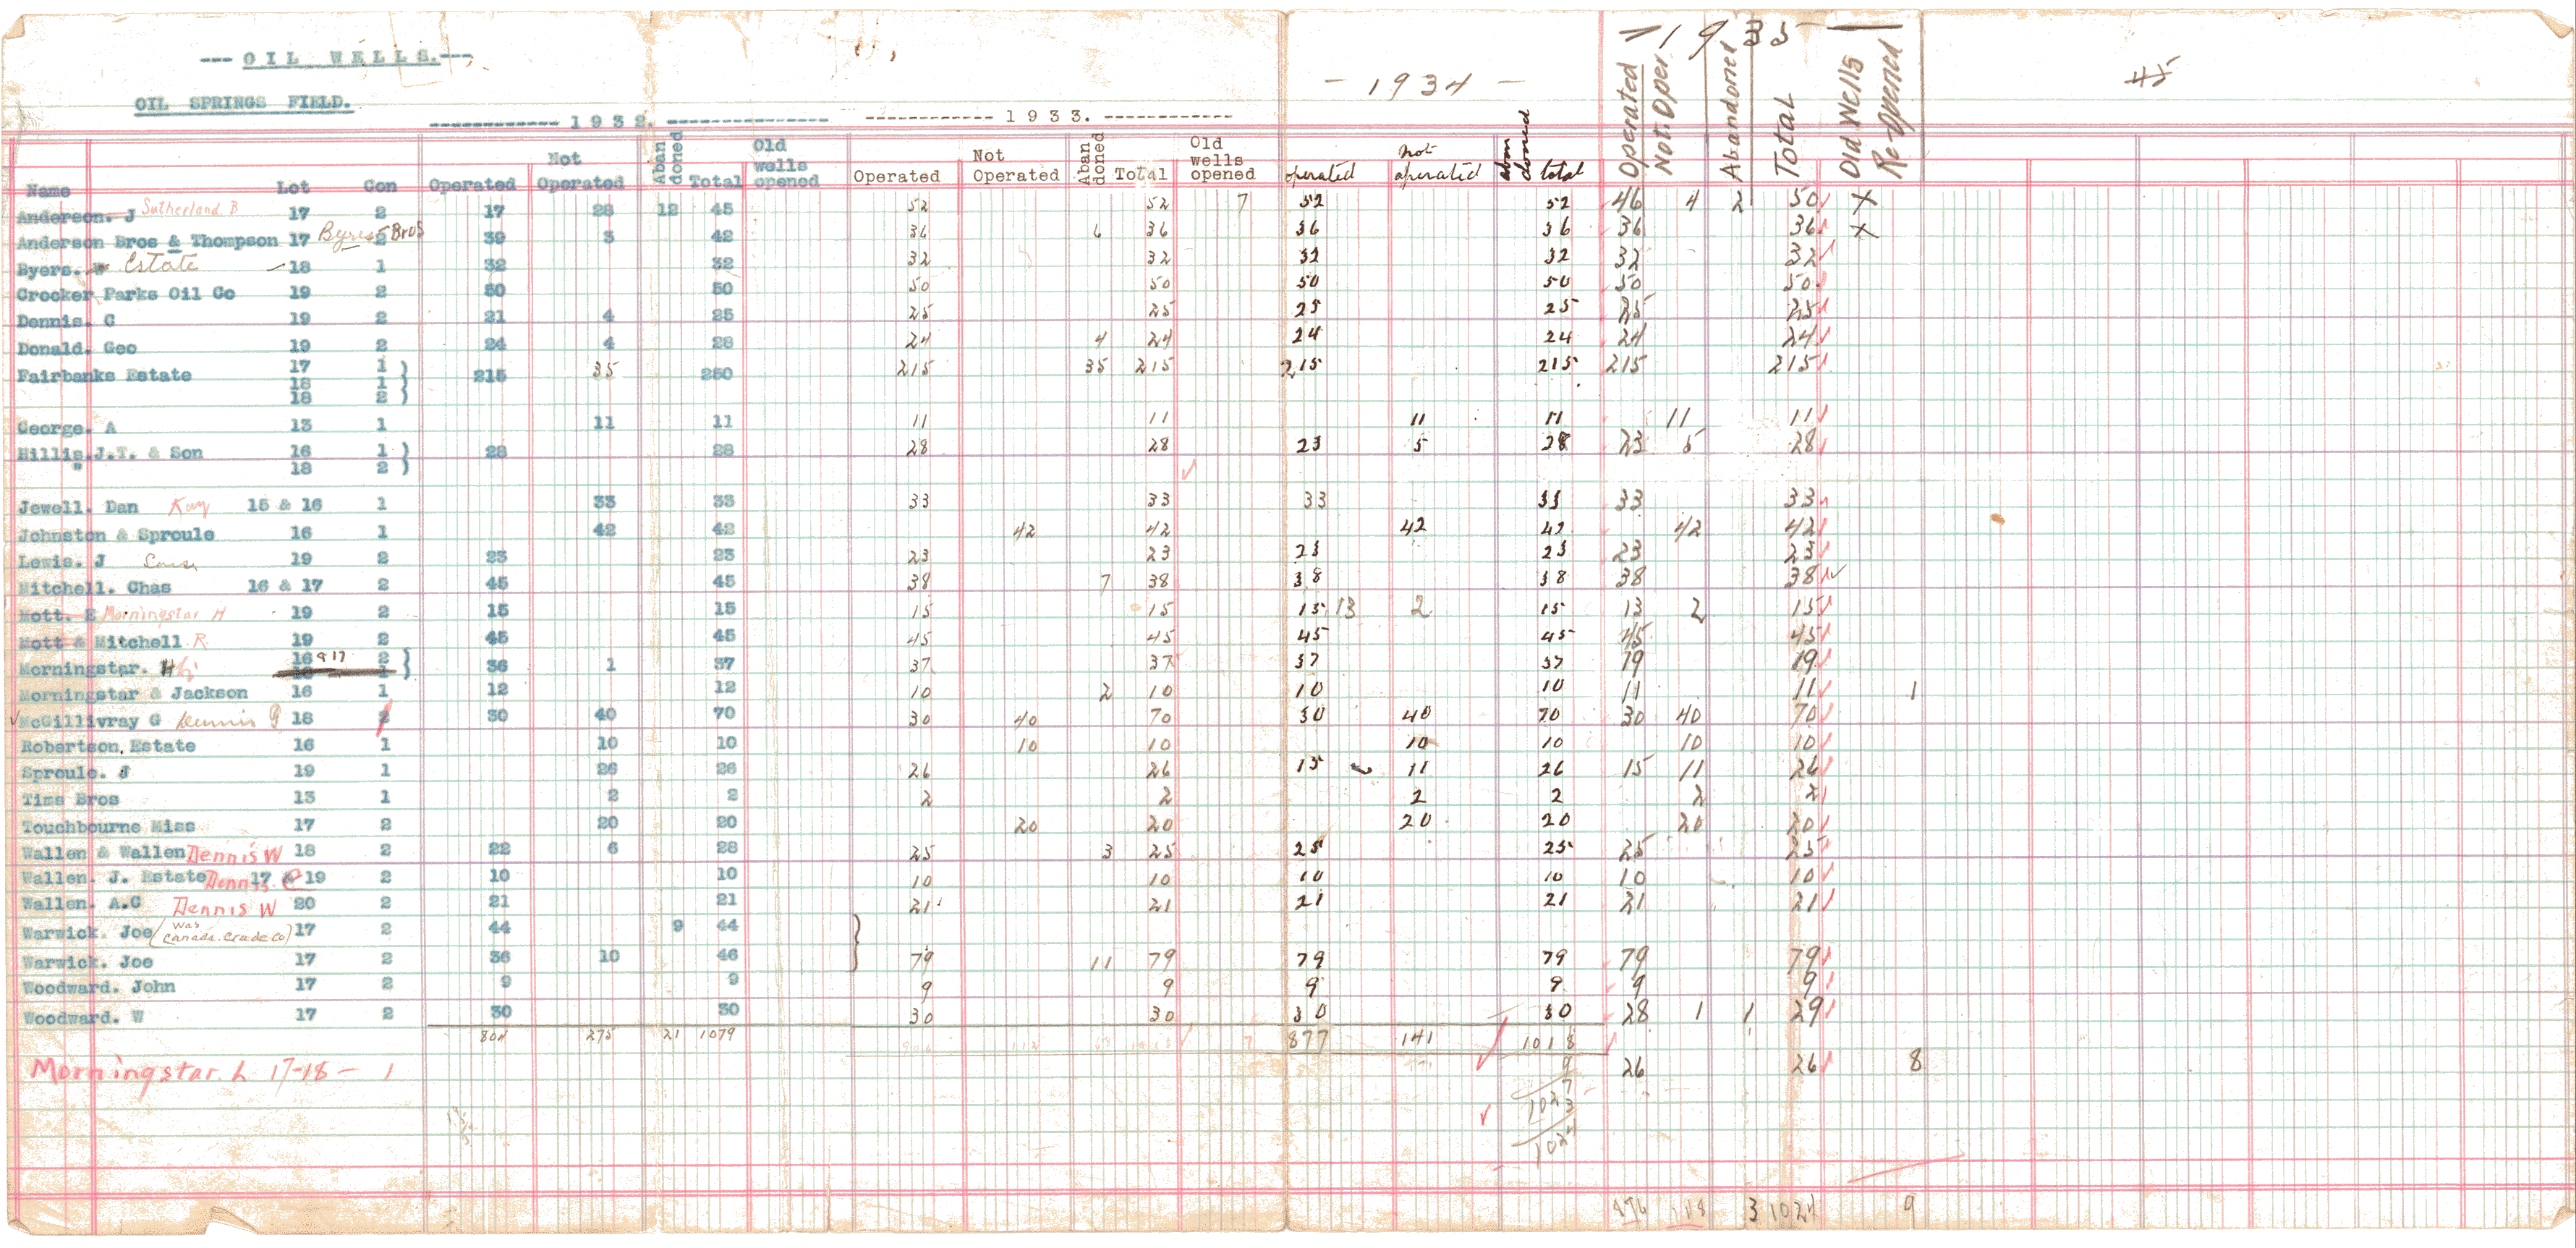 --- OIL WELLS.---
OIL SPRINGS FIELD.
------------ 1 9 3 2. --------------- ------------ 1 9 3 3. ------------ - 1934 - - 1935 - 45
Name Lot Con Operated Not Operated Aban doned Total Old wells opened Operated Not Operated Aban doned Total Old wells opened operated not operated aban doned total Operated Not Oper Abandoned Total Old Wells Re-opened
Anderson. J Sutherland B 17 2 17 28 12 45 52 52 7 52 52 46 4 2 50 x
Anderson Bros & Thompson 17 Byers Bros 2 39 3 42 36 6 36 36 36 36 36 x
Byers. W Estate 18 1 32 32 32 32 32 32 32 32
Crocker Parks Oil Co 19 2 50 50 50 50 50 50 50 50
Dennis. C 19 2 21 4 25 25 25 25 25 25 25
Donald. Geo 19 2 24 4 28 24 4 24 24 24 24 24
Fairbanks Estate 17 1 ) 215 35 250 215 35 215 215 215 215 215
18 1 )
18 2 )
George. A 13 1 11 11 11 11 11 11 11 11
Hillis.J.T. & Son 16 1 ) 28 28 28 28 23 5 28 23 5 28
" 18 2 )
Jewell. Dan Kay 15 & 16 1 33 33 33 33 33 33 33 33
Johnston & Sproule 16 1 42 42 42 42 42 42 42 42
Lewis. J 19 2 23 23 23 23 23 23 23 23
Mitchell. Chas 16 & 17 2 45 45 38 7 38 38 38 38 38
Mott. E Morningstar H 19 2 15 15 15 15 15 13 2 15 13 2 15
Mott & Mitchell R. 19 2 45 45 45 45 45 45 45 45
Morningstar. H 16 & 17 2 } 36 1 37 37 37 37 37 19 19
Morningstar & Jackson 16 1 12 12 10 2 10 10 10 11 11 1
McGillivray G Dennis 18 2 30 40 70 30 40 70 30 40 70 30 40 70
Robertson. Estate 16 1 10 10 10 10 10 10 10 10
Sproule. J 19 1 26 26 26 26 15 11 26 15 11 26
Tims Bros 13 1 2 2 2 2 2 2 2 2
Touchbourne Miss 17 2 20 20 20 20 20 20 20 20
Wallen & Wallen Dennis W 18 2 22 6 28 25 3 25 25 25 25 25
Wallen. J. Estate Dennis. C 17 & 19 2 10 10 10 10 10 10 10 10
Wallen. A.C Dennis W 20 2 21 21 21 21 21 21 21 21
Warwick. Joe (was Canada. Crude Co) 17 2 44 9 44
Warwick. Joe 17 2 36 10 46 79 11 79 79 79 79 79
Woodward. John 17 2 9 9 9 9 9 9 9 9
Woodward. W 17 2 30 30 30 30 30 30 28 1 1 29
804 275 21 1079 7 877 141 1018
Morningstar. L 17-18 - 1 9 26 26 8
7
1023
1024
896 118 3 1024 9